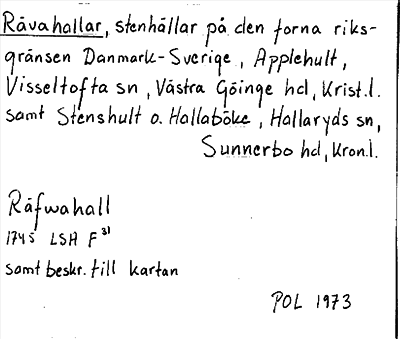 Rävahallar, stenhällar på den forna riks-
gränsen Danmark-Sverige, Applehult,
Visseltofta sn, Västra Göinge hd, Krist.l.
samt Stenshult o. Hallaböke, Hallaryds sn,
Sunnerbo hd, Kron.l.
Räfwahall
1745 LSA F 31
samt beskr. till kartan
POL 1973